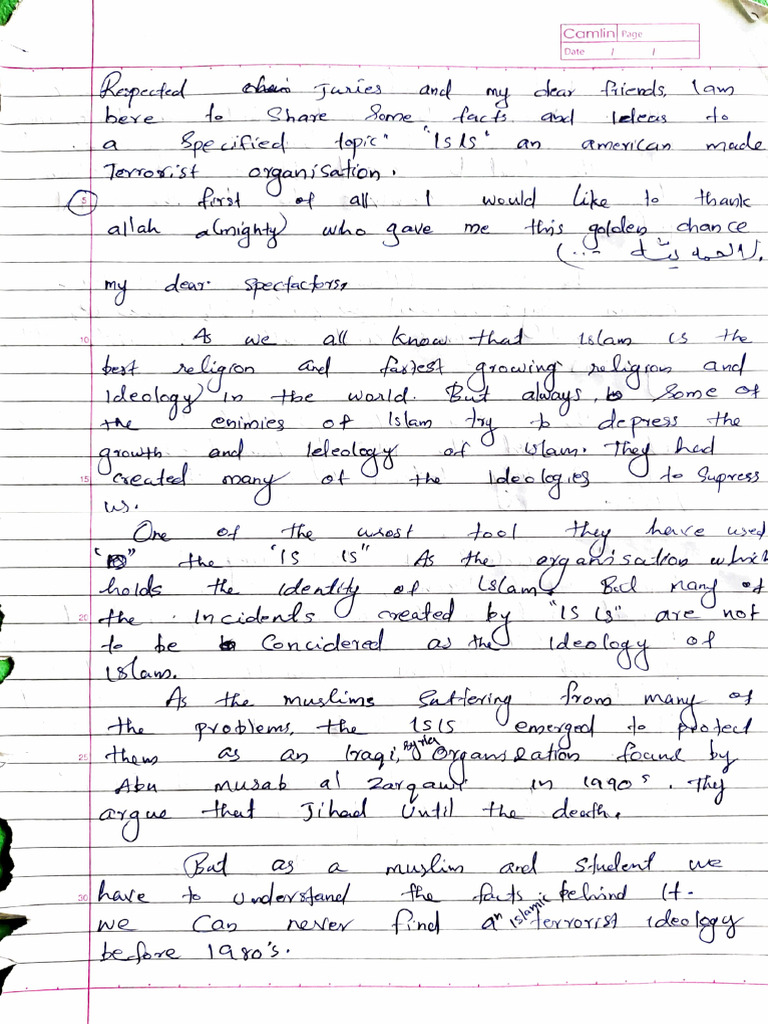 Camlin Page
Date / /
Respected Juries and my dear friends, I am
here to Share Some facts and Ideas to
a Specified topic "IsIs" an american made
Terrorist organisation.
5 first of all I would like to thank
allah a(mighty) who gave me this golden chance
my dear spectactors,
10 As we all know that Islam is the
best religion and fastest growing religion and
Ideology) in the world. But always, Some of
the enimies of Islam try to depress the
growth and Ideology of Islam. They had
15 created many of the Ideologies to Supress
us.
One of the wrost tool they have used
" " the "IS IS" As the organisation which
holds the Identity of Islam. But many of
20 the Incidents created by "IS IS" are not
to be Concidered as the Ideology of
Islam.
As the muslims Suffering from many of
the problems, the ISIS emerged to protect
25 them as an Iraqi, Syria Organisation found by
Abu musab al Zarqawi in 1990s. They
argue that Jihad Until the death.
But as a muslim and student we
30 have to understand the facts behind it.
we can never find an islamic terrorist ideology
before 1980's.